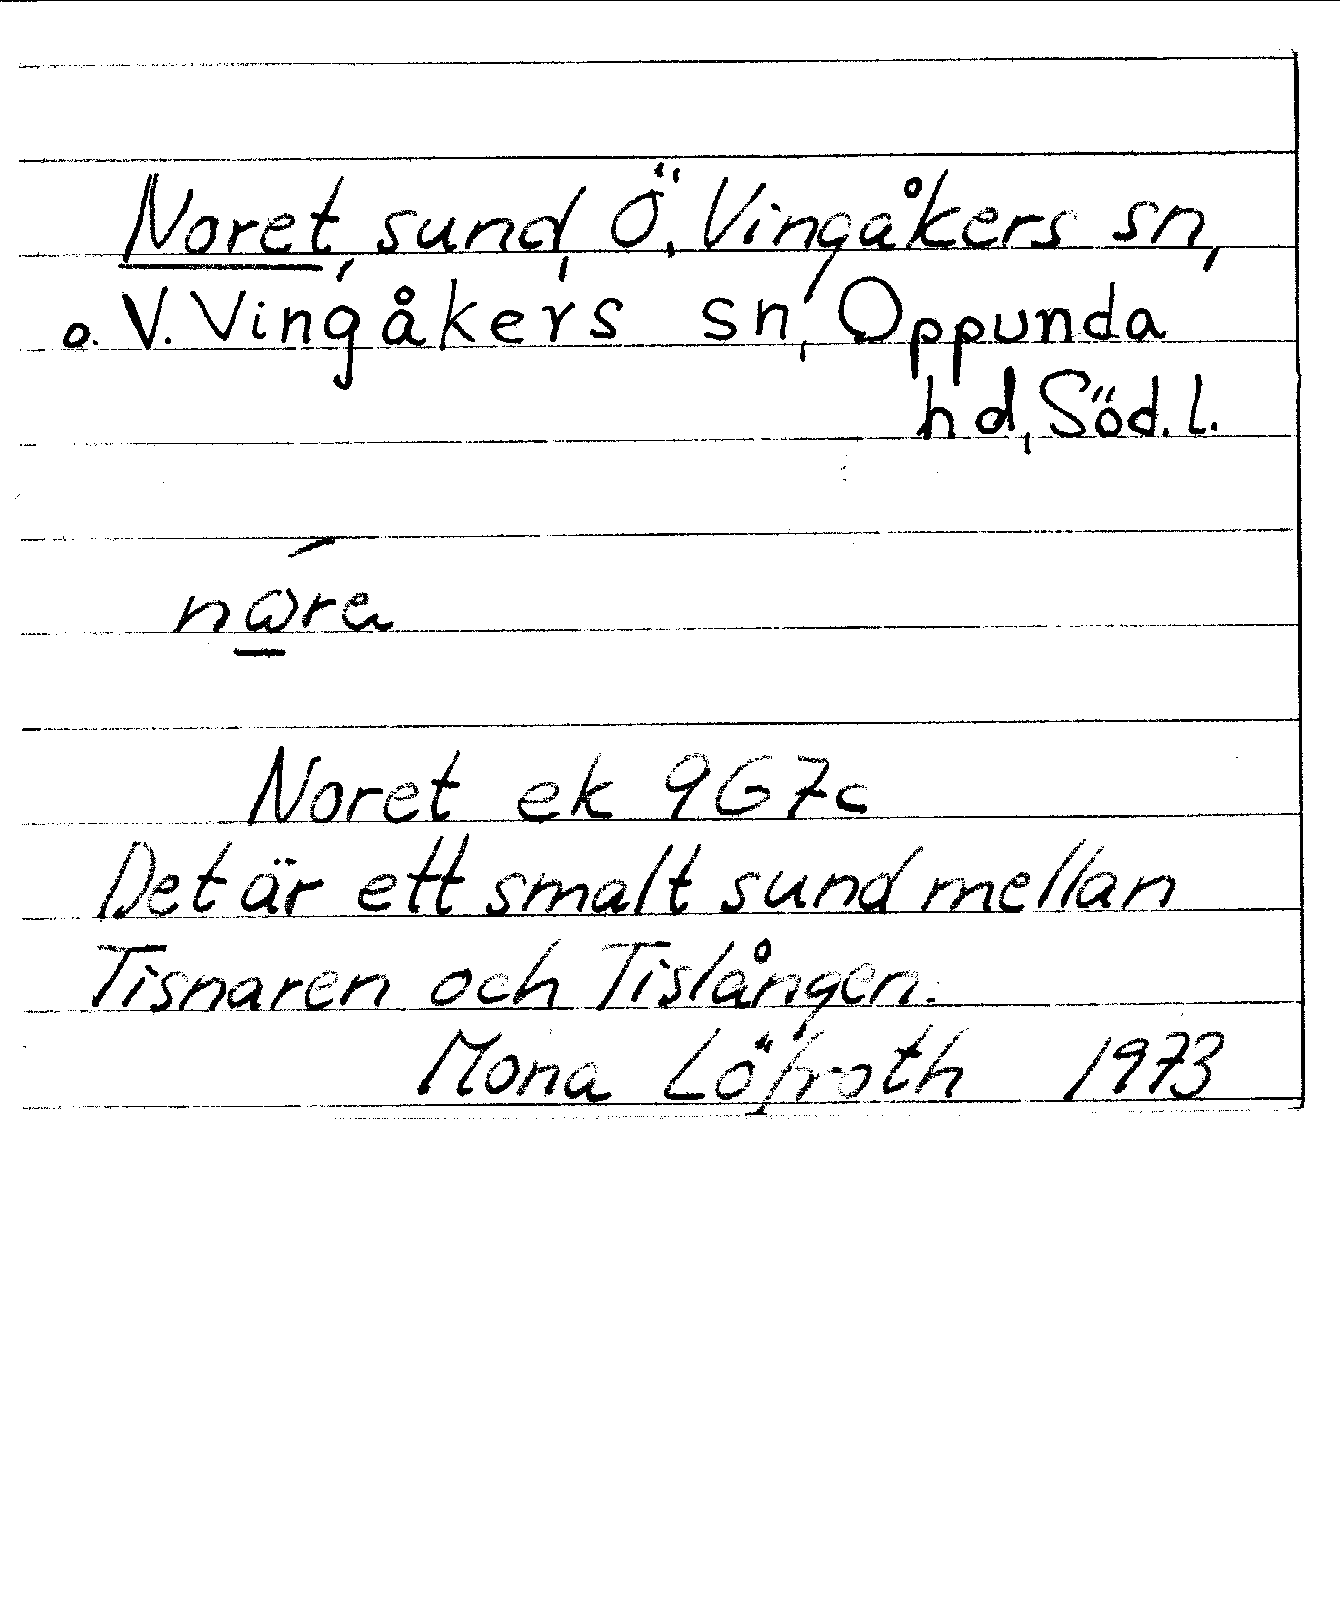 Noret, sund, Ö. Vingåkers sn,
o. V. Vingåkers sn, Oppunda
hd, Söd. l.
Noret ek 9G7c
Det är ett smalt sund mellan
Tisnaren och Tislången.
Mona Löfroth 1973